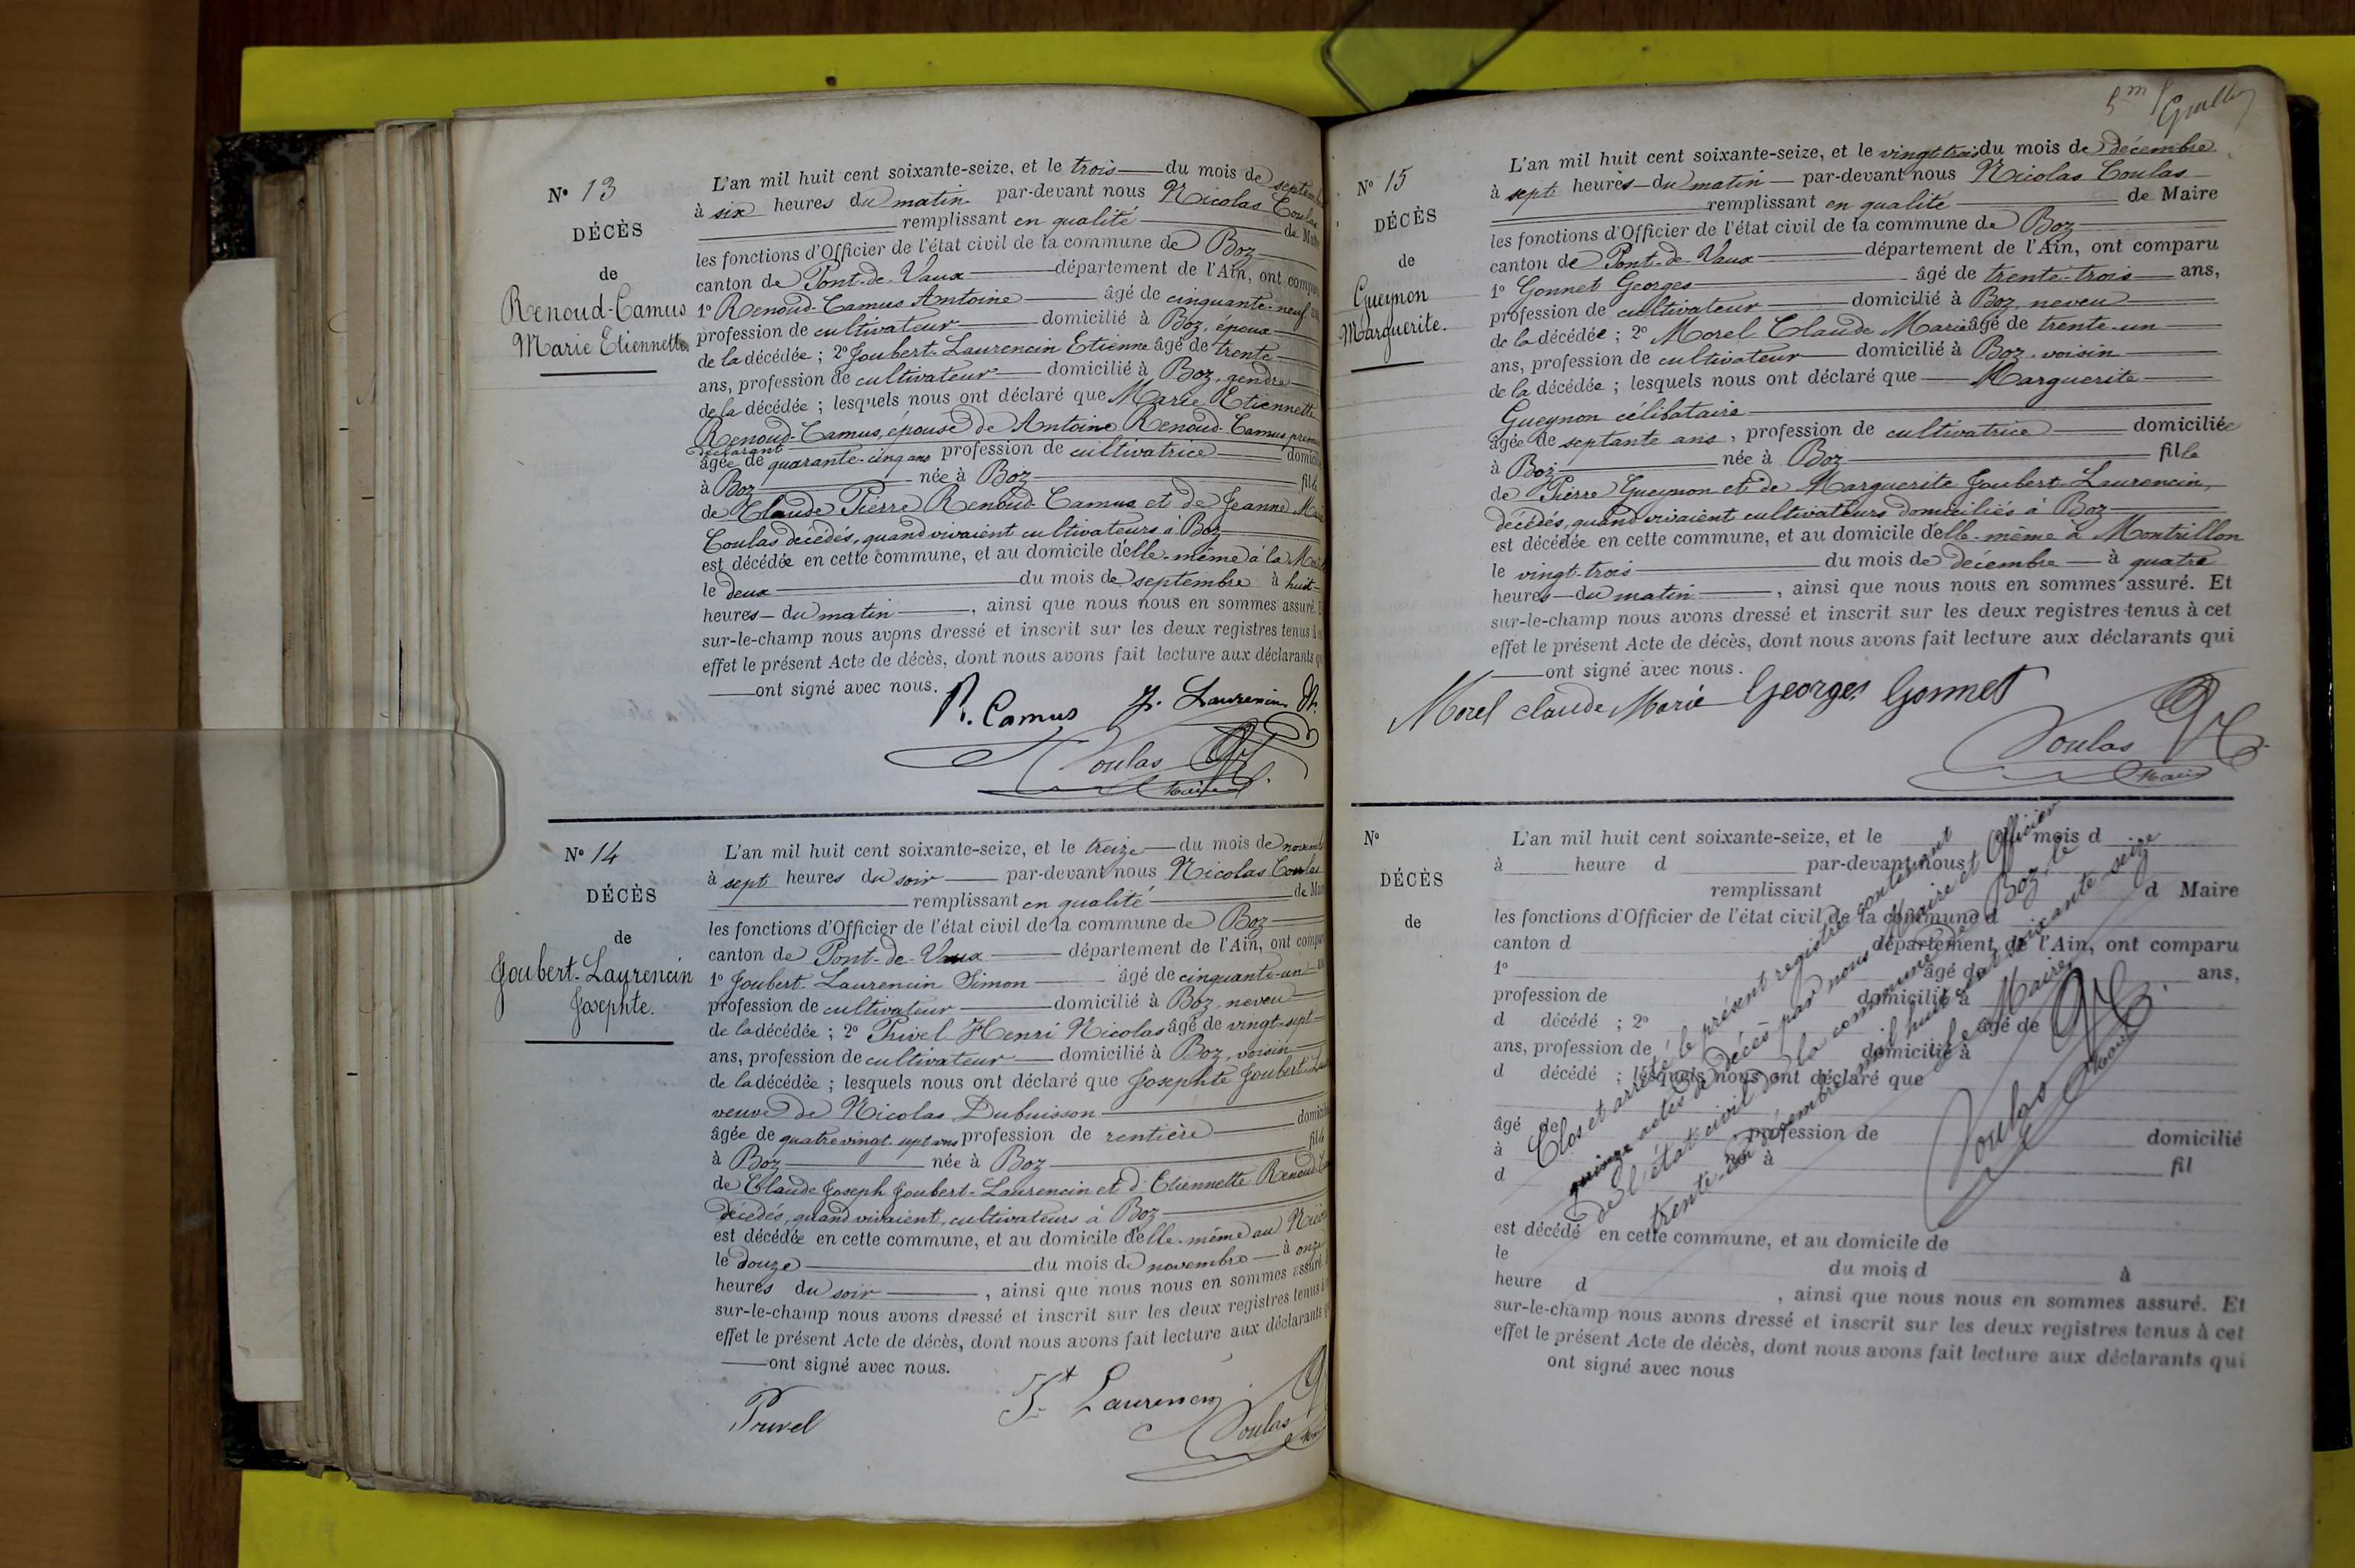 N° 13
DÉCÈS
de
Renoud-Camus
Marie Etiennette.
L'an mil huit cent soixante-seize, et le trois du mois de septembre
à six heures du matin par-devant nous Nicolas Coulas
remplissant en qualité de Maire
les fonctions d'Officier de l'état civil de la commune de Boz
canton de Pont-de-Vaux département de l'Ain, ont compar
1° Renoud-Camus Antoine âgé de cinquante-neuf
profession de cultivateur domicilié à Boz, époux
de la décédée ; 2° Joubert-Laurencin Etienne âgé de trente
ans, profession de cultivateur domicilié à Boz, gendre
de la décédée ; lesquels nous ont déclaré que Marie Etiennette
Renoud-Camus, épouse de Antoine Renoud-Camus, premier
déclarant
âgée de quarante-cinq ans profession de cultivatrice domici
à Boz née à Boz fille
de Claude Pierre Renoud-Camus et de Jeanne Marie
Coulas décédés, quand vivaient cultivateurs à Boz
est décédée en cette commune, et au domicile d'elle-même à la
le deux du mois de septembre à huit
heures du matin , ainsi que nous nous en sommes assuré. E
sur-le-champ nous avons dressé et inscrit sur les deux registres tenus à
effet le présent Acte de décès, dont nous avons fait lecture aux déclarants q
ont signé avec nous.
R. Camus J. Laurencin
Coulas
Maire
N° 14
DÉCÈS
de
Joubert-Laurencin
Josephte.
L'an mil huit cent soixante-seize, et le treize du mois de novemb
à sept heures du soir par-devant nous Nicolas Coulas
remplissant en qualité de Mair
les fonctions d'Officier de l'état civil de la commune de Boz
canton de Pont-de-Vaux département de l'Ain, ont compar
1° Joubert-Laurencin Simon âgé de cinquante-un
profession de cultivateur domicilié à Boz, neveu
de la décédée ; 2° Privel Henri Nicolas âgé de vingt-sept
ans, profession de cultivateur domicilié à Boz, voisin
de la décédée ; lesquels nous ont déclaré que Josephte Joubert-La
veuve de Nicolas Dubuisson
âgée de quatre vingt-sept ans profession de rentière domicili
à Boz née à Boz fille
de Claude Joseph Joubert-Laurencin et d'Etiennette Renoud
décédés, quand vivaient, cultivateurs à Boz
est décédée en cette commune, et au domicile d'elle-même au
le douze du mois de novembre à onze
heures du soir , ainsi que nous nous en sommes assuré.
sur-le-champ nous avons dressé et inscrit sur les deux registres tenus à
effet le présent Acte de décès, dont nous avons fait lecture aux déclarants q
ont signé avec nous.
Privel Laurencin
Coulas
5m
N° 15
DÉCÈS
de
Gueynon
Marguerite.
L'an mil huit cent soixante-seize, et le vingt-trois du mois de décembre
à sept heures du matin par-devant nous Nicolas Coulas
remplissant en qualité de Maire
les fonctions d'Officier de l'état civil de la commune de Boz
canton de Pont-de-Vaux département de l'Ain, ont comparu
1° Gonnet Georges âgé de trente-trois ans,
profession de cultivateur domicilié à Boz, neveu
de la décédée ; 2° Morel Claude Marie âgé de trente-un
ans, profession de cultivateur domicilié à Boz, voisin
de la décédée ; lesquels nous ont déclaré que Marguerite
Gueynon célibataire
âgée de septante ans, profession de cultivatrice domiciliée
à Boz née à Boz fille
de Pierre Gueynon et de Marguerite Joubert-Laurencin,
décédés, quand vivaient cultivateurs domiciliés à Boz
est décédée en cette commune, et au domicile d'elle-même à Montrillon
le vingt-trois du mois de décembre à quatre
heures du matin , ainsi que nous nous en sommes assuré. Et
sur-le-champ nous avons dressé et inscrit sur les deux registres tenus à cet
effet le présent Acte de décès, dont nous avons fait lecture aux déclarants qui
ont signé avec nous.
Morel Claude Marie Georges Gonnet
Coulas
Maire
N°
DÉCÈS
de
L'an mil huit cent soixante-seize, et le du mois d
à heure d par-devant nous
remplissant d Maire
les fonctions d'Officier de l'état civil de la commune d
canton d département de l'Ain, ont comparu
1° âgé de ans,
profession de domicilié à
d décédé ; 2° âgé de
ans, profession de domicilié à
d décédé ; lesquels nous ont déclaré que
âgé de profession de domicilié
à né à fil
d
est décédé en cette commune, et au domicile de
le du mois d à
heure d , ainsi que nous nous en sommes assuré. Et
sur-le-champ nous avons dressé et inscrit sur les deux registres tenus à cet
effet le présent Acte de décès, dont nous avons fait lecture aux déclarants qui
ont signé avec nous
Clos et arrêté le présent registre contenant
quinze actes de décès par nous Maire et Officier
de l'état civil de la commune de Boz, le
trente-un décembre mil huit cent soixante-seize
Le Maire
Coulas
Maire